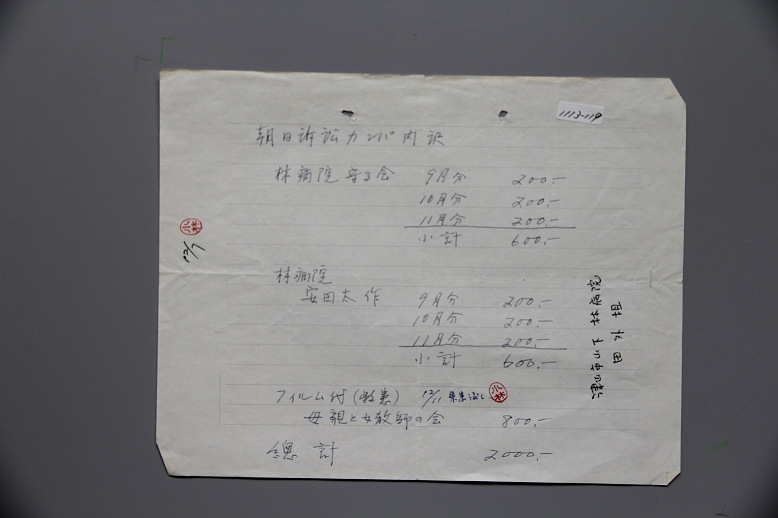 1113-119
朝日訴訟カンパ内訳
林病院 守る会 9月分 200.-
10月分 200.-
11月分 200.-
小計 600.-
林病院
安田太作 9月分 200.-
10月分 200.-
11月分 200.-
小計 600.-
フィルム代 12/11 小林
母親と女教師の会 800.-
總計 2000.-
小林
12/7
津山市山下 林病院